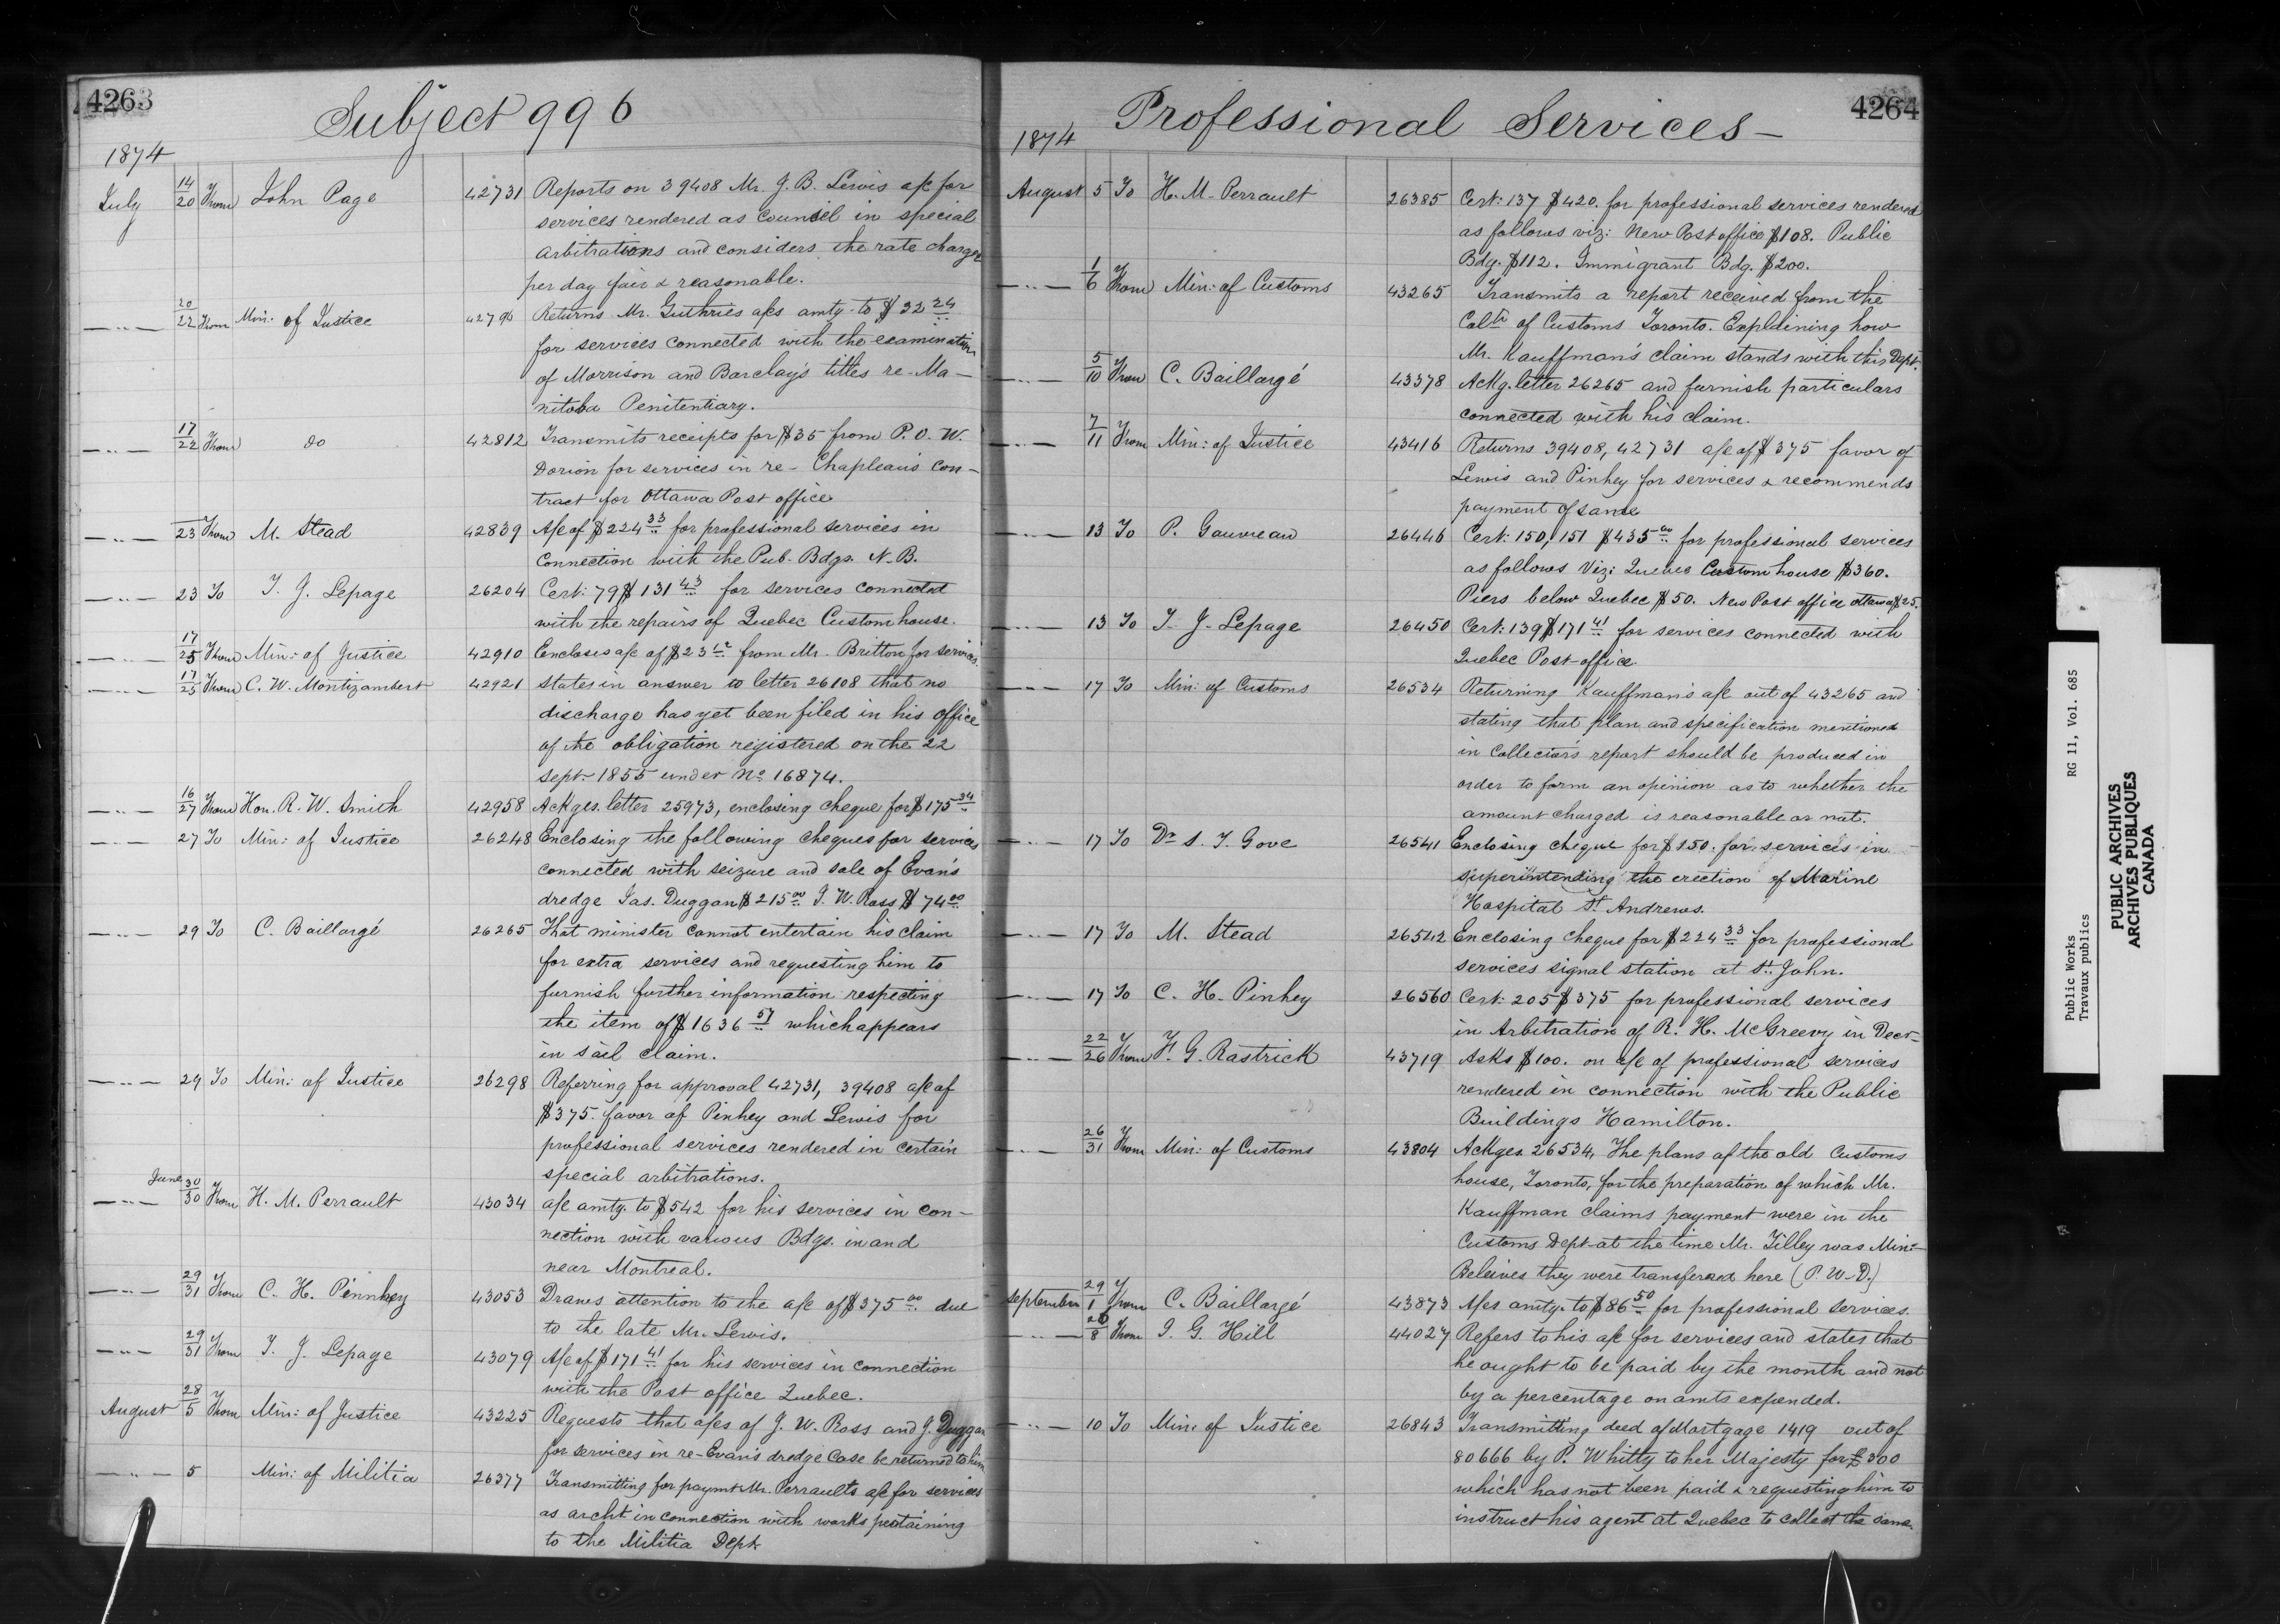 4263
Subject 996
1874
July 14/20 From John Page 42731 Reports on 39408 Mr. J. B. Lewis a/c for
services rendered as Counsel in special
Arbitrations and considers the rate charged
per day fair & reasonable.
—"— 20/22 From Min: of Justice 42796 Returns Mr. Guthries a/cs amtg. to $32 24
for services connected with the examination
of Morrison and Barclay's titles re-Ma-
nitoba Penitentiary.
—"— 17/22 From do 42812 Transmits receipts for $35 from P. O. W.
Dorion for services in re- Chapleau's Con-
tract for Ottawa Post office
—"— 23 From M. Stead 42839 A/c of $224 33 for professional services in
Connection with the Pub. Bdgs. N.B.
—"— 23 To T. J. Lepage 26204 Cert: 79 $131 43 for services connected
with the repairs of Quebec Custom house.
—"— 17/25 From Min: of Justice 42910 Encloses a/c of $23 from Mr. Britton for services.
—"— 17/25 From C. W. Montizambert 42921 States in answer to letter 26108 that no
discharge has yet been filed in his office
of the obligation registered on the 22
Sept. 1855 under No 16874.
—"— 16/27 From Hon. R. W. Smith 42958 Ackges. letter 25973, enclosing cheque for $175 34
—"— 27 To Min: of Justice 26248 Enclosing the following cheques for services
connected with seizure and sale of Evan's
dredge Jas. Duggan $215 00 J. W. Ross $74 00
—"— 29 To C. Baillargé 26265 That minister cannot entertain his claim
for extra services and requesting him to
furnish further information respecting
the item of $1636 57 which appears
in sail claim.
—"— 29 To Min: of Justice 26298 Referring for approval 42731, 39408 a/c of
$375. favor of Pinhey and Lewis for
professional services rendered in certain
special arbitrations.
—"— June 30/30 From H. M. Perrault 43034 a/c amtg. to $542 for his services in con-
nection with various Bdgs. in and
near Montreal.
—"— 29/31 From C. H. Pinnhey 43053 Draws attention to the a/c of $375 00 due
to the late Mr. Lewis.
—"— 29/31 From T. J. Lepage 43079 A/c of $171 41 for his services in connection
with the Post office Quebec.
August 28/5 From Min: of Justice 43225 Requests that a/cs of J. W. Ross and J. Duggan
for services in re-Evan's dredge Case be returned to him
—"— 5 Min: of Militia 26377 Transmitting for paymt Mr. Perraults a/c for services
as archt in connection with works pertaining
to the Militia Dept
4264
Professional Services—
1874
August 5 To H. M. Perrault 26385 Cert: 137 $420. for professional services rendered
as follows viz: New Post office $108. Public
Bdg. $112. Immigrant Bdg. $200.
—"— 1/6 From Min: of Customs 43265 Transmits a report received from the
Coltr of Customs Toronto. Explaining how
Mr. Kauffman's claim stands with this Dept.
—"— 5/10 From C. Baillargé 43378 Ackg. letter 26265 and furnish particulars
connected with his claim.
—"— 7/11 From Min: of Justice 43416 Returns 39408, 42731 a/c of $375 favor of
Lewis and Pinhey for services & recommends
payment of same
—"— 13 To P. Gauvreau 26446 Cert: 150, 151 $435 00 for professional services
as follows Viz: Quebec Custom house $360.
Piers below Quebec $50. New Post office Ottawa $25.
—"— 13 To T. J. Lepage 26450 Cert: 139 $171 41 for services connected with
Quebec Post-office.
—"— 17 To Min: of Customs 26534 Returning Kauffman's a/c out of 43265 and
stating that plan and specification mentioned
in Collector's report should be produced in
order to form an opinion as to whether the
amount charged is reasonable or not.
—"— 17 To Dr S. T. Gove 26541 Enclosing cheque for $150. for services in
superintending the erection of Marine
Hospital St Andrews.
—"— 17 To M. Stead 26542 Enclosing cheque for $224 33 for professional
services signal station at St. John.
—"— 17 To C. H. Pinhey 26560 Cert: 205 $375 for professional services
in Arbitration of R. H. McGreevy in Decr—
—"— 22/26 From F. G. Rastrick 43719 Asks $100. on a/c of professional services
rendered in connection with the Public
Buildings Hamilton.
—"— 26/31 From Min: of Customs 43804 Ackges. 26534, The plans of the old Customs
house, Toronto, for the preparation of which Mr.
Kauffman claims payment were in the
Customs Dept at the time Mr. Tilley was Min:—
Beleives they were transferred here (P. W. D.)
September 29/1 From C. Baillargé 43873 A/cs amtg. to $86 50 for professional services.
—"— 8 From J. G. Hill 44027 Refers to his a/c for services and states that
he ought to be paid by the month and not
by a percentage on amts expended.
—"— 10 To Min: of Justice 26843 Transmitting deed of Mortgage 1419 out of
80666 by P. Whitty to her Majesty for £300
which has not been paid & requesting him to
instruct his agent at Quebec to collect the same.
Public Works RG 11, Vol. 685
Travaux publics
PUBLIC ARCHIVES
ARCHIVES PUBLIQUES
CANADA